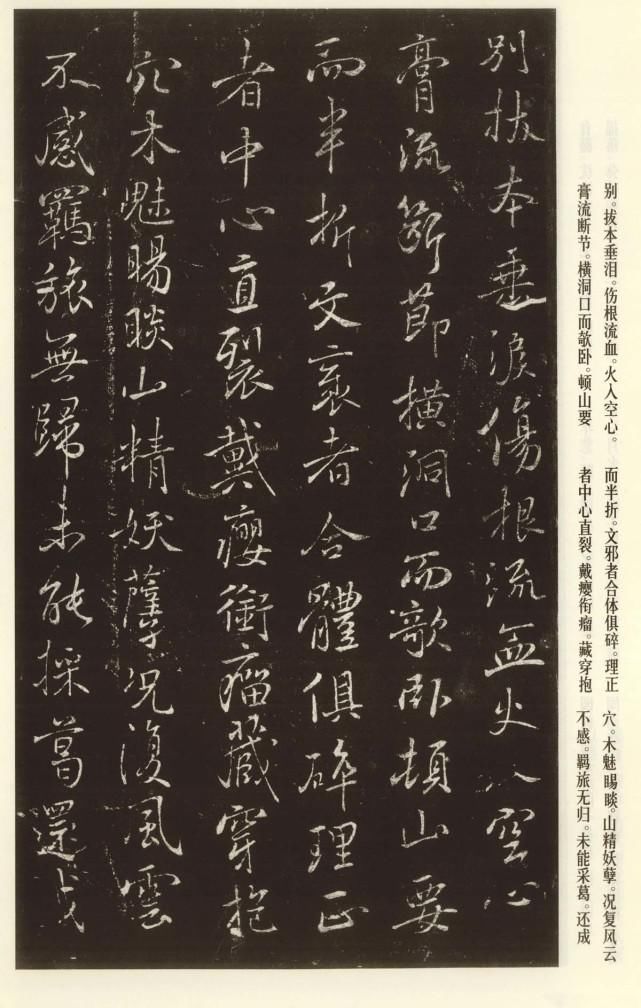 别。拔本垂泪。伤根流血。火入空心。
膏流断节。横洞口而欹卧。顿山要
而半折。文邪者合体俱碎。理正
者中心直裂。戴瘿衔瘤。藏穿抱
穴。木魅睗睒。山精妖孽。况复风云
不感。羁旅无归。未能采葛。还成
别拔本垂淚傷根流血火入空心
膏流斷節橫洞口而欹卧頓山要
而半折文衺者合體俱碎理正
者中心直裂戴癭銜瘤藏穿抱
穴木魅睗睒山精妖孽况復風雲
不感羈旅無歸未能採葛還成